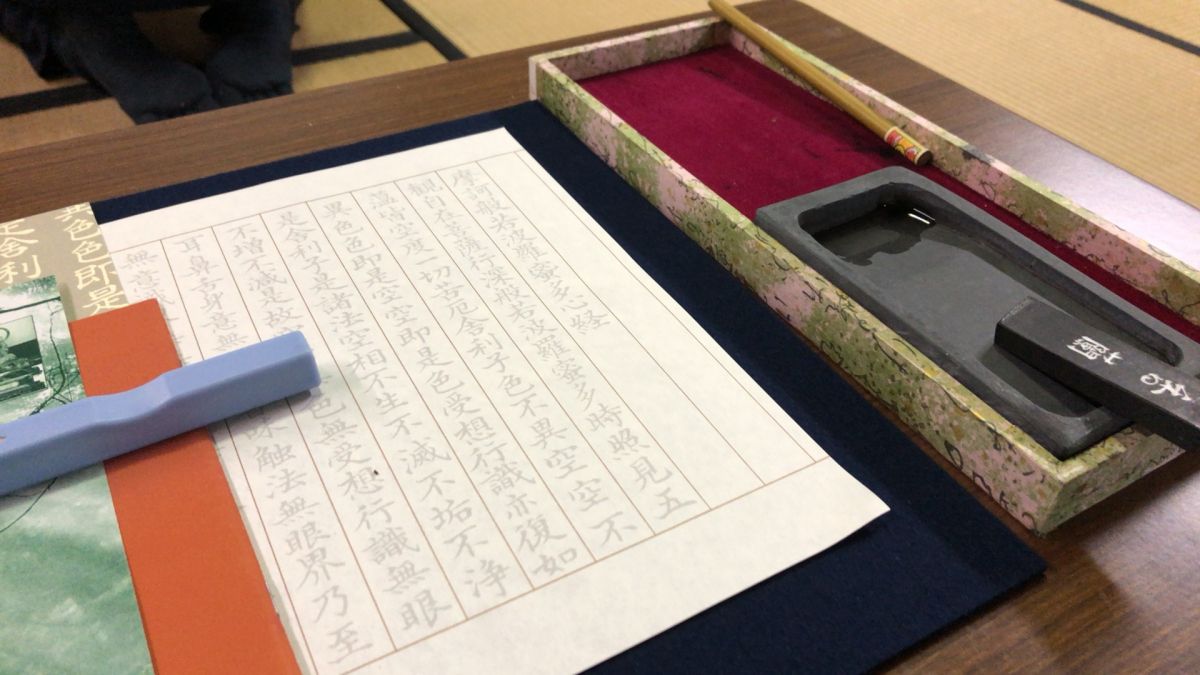 摩訶般若波羅蜜多心経
観自在菩薩行深般若波羅蜜多時照見五
蘊皆空度一切苦厄舎利子色不異空空不
異色色即是空空即是色受想行識亦復如
是舎利子是諸法空相不生不滅不垢不浄
不増不減是故 色無受想行識無眼
耳鼻舌身意無 味触法無眼界乃至
無意識
色色即是
舎利